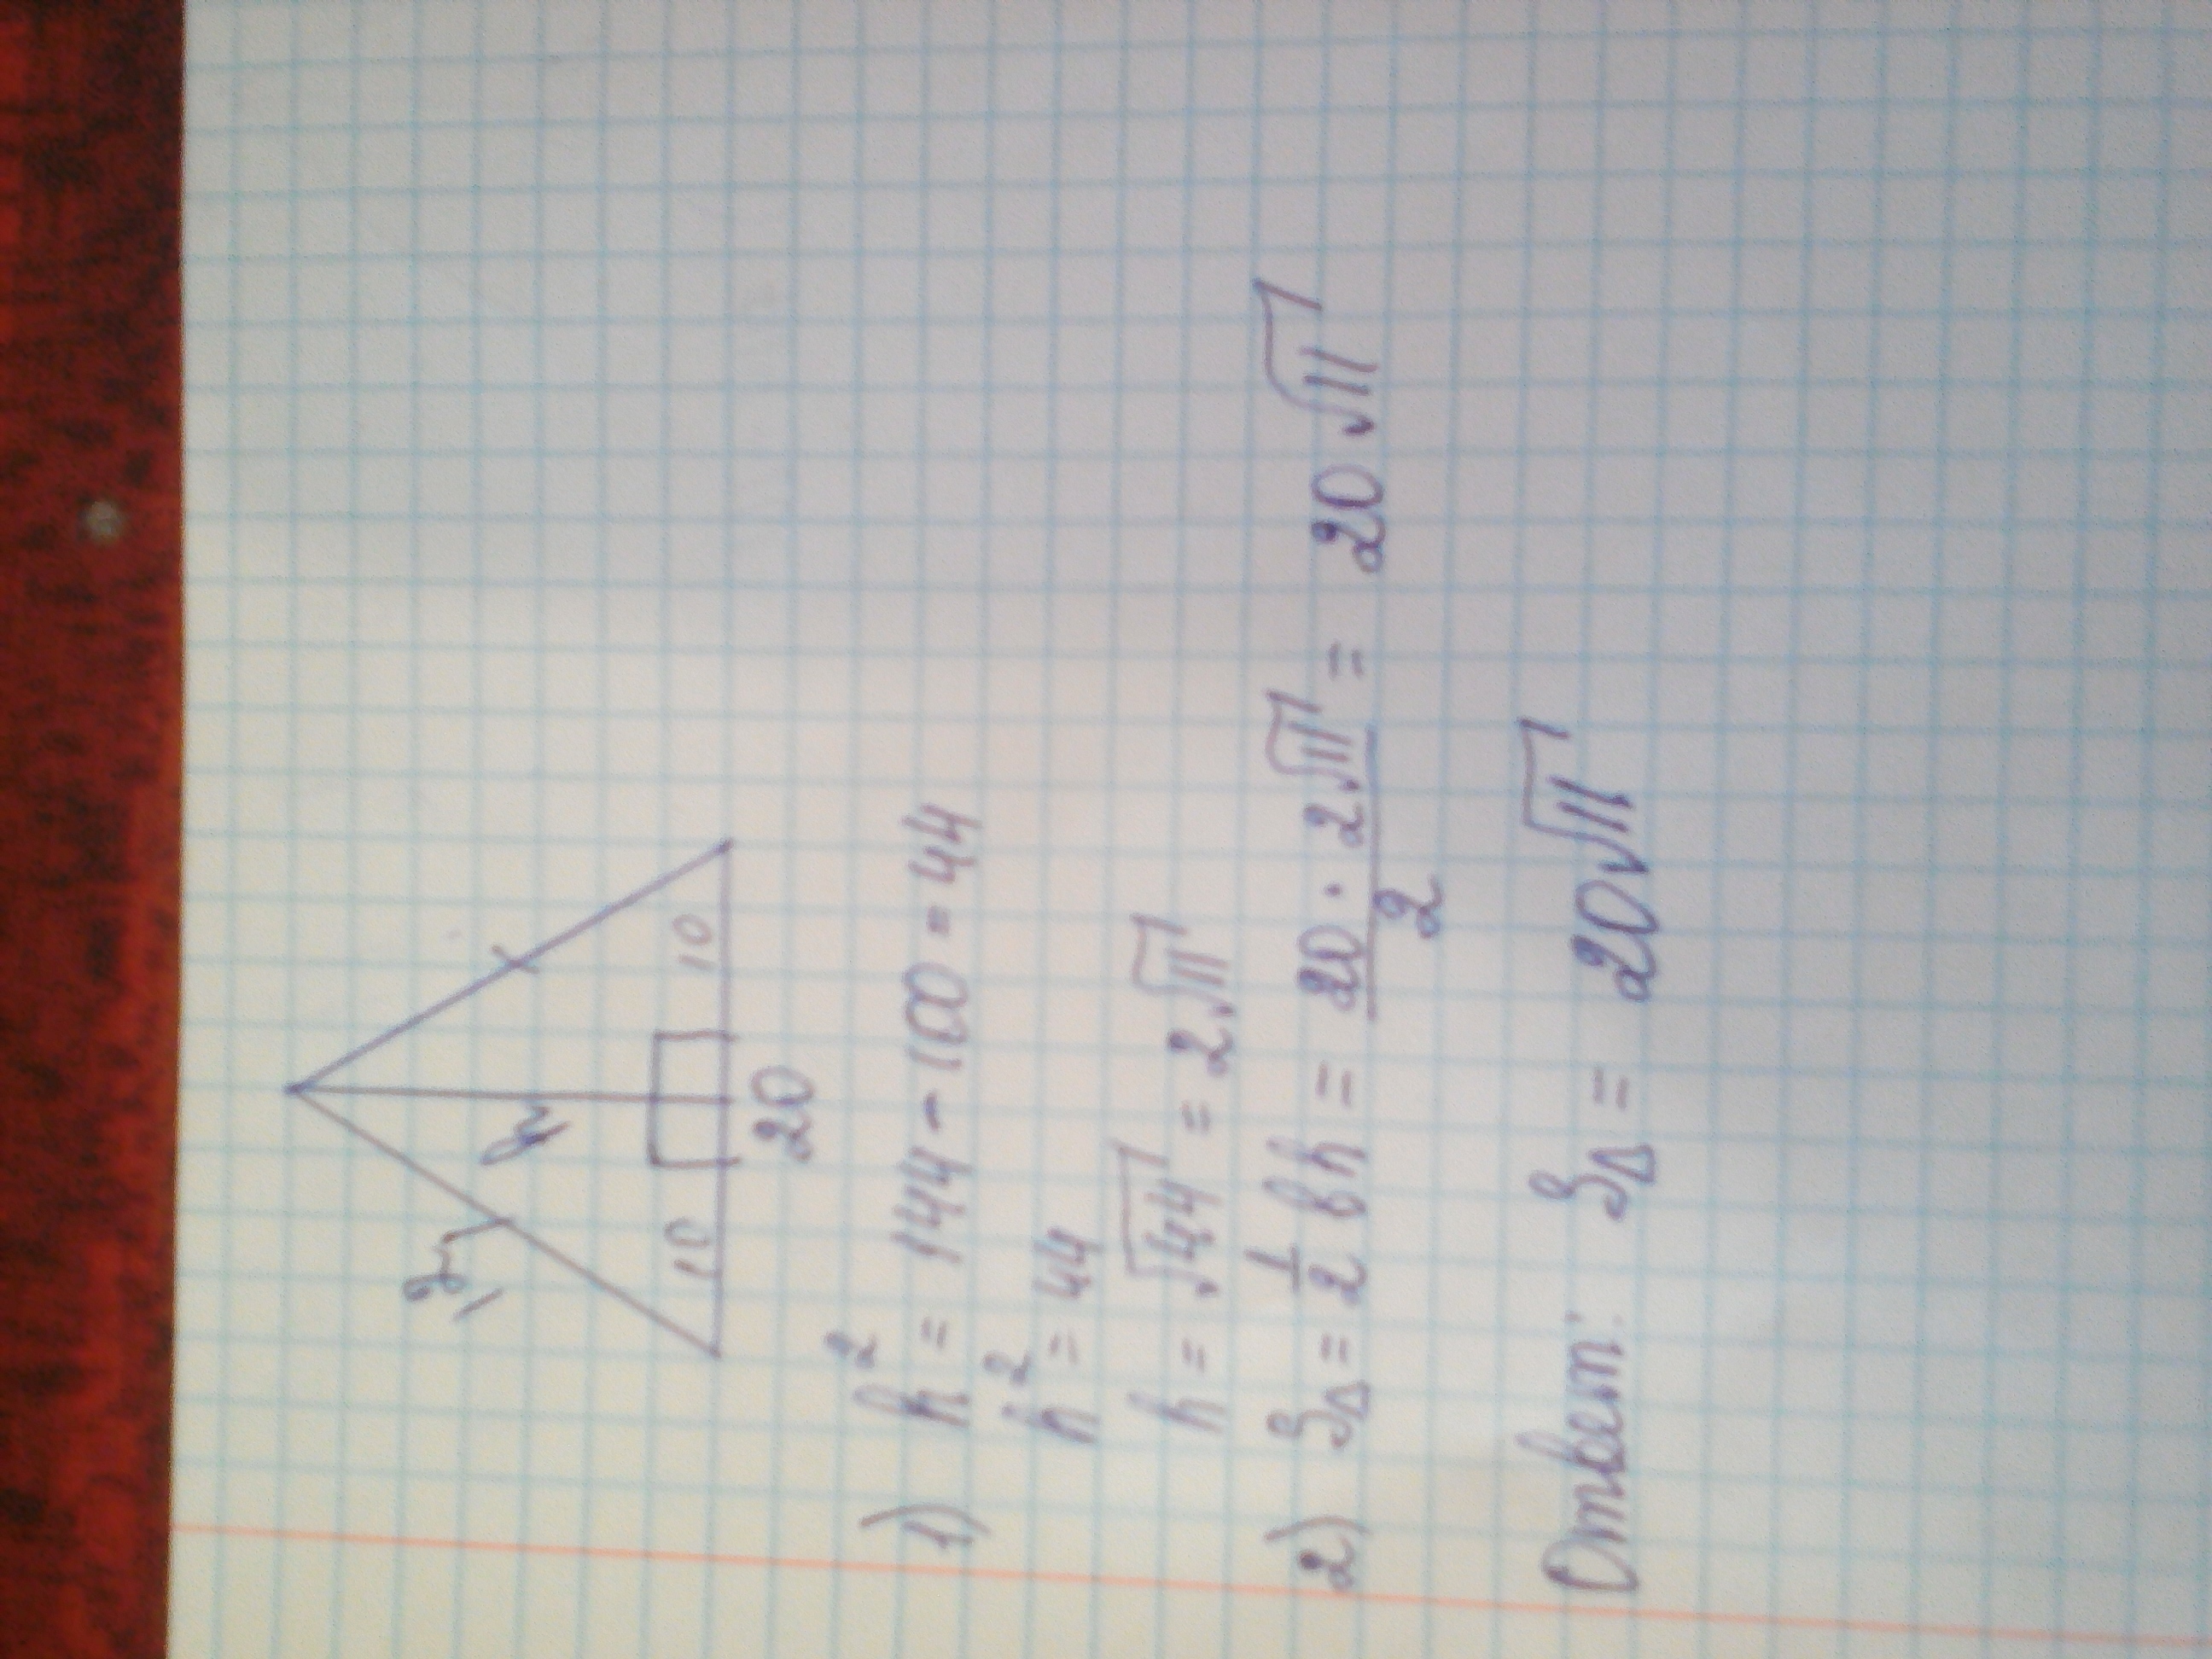 12
h
10 10
20
1) h² = 144 - 100 = 44
h² = 44
h = √44 = 2√11
2) S△ = 1/2 bh = (20 · 2√11)/2 = 20√11
Ответ: S△ = 20√11